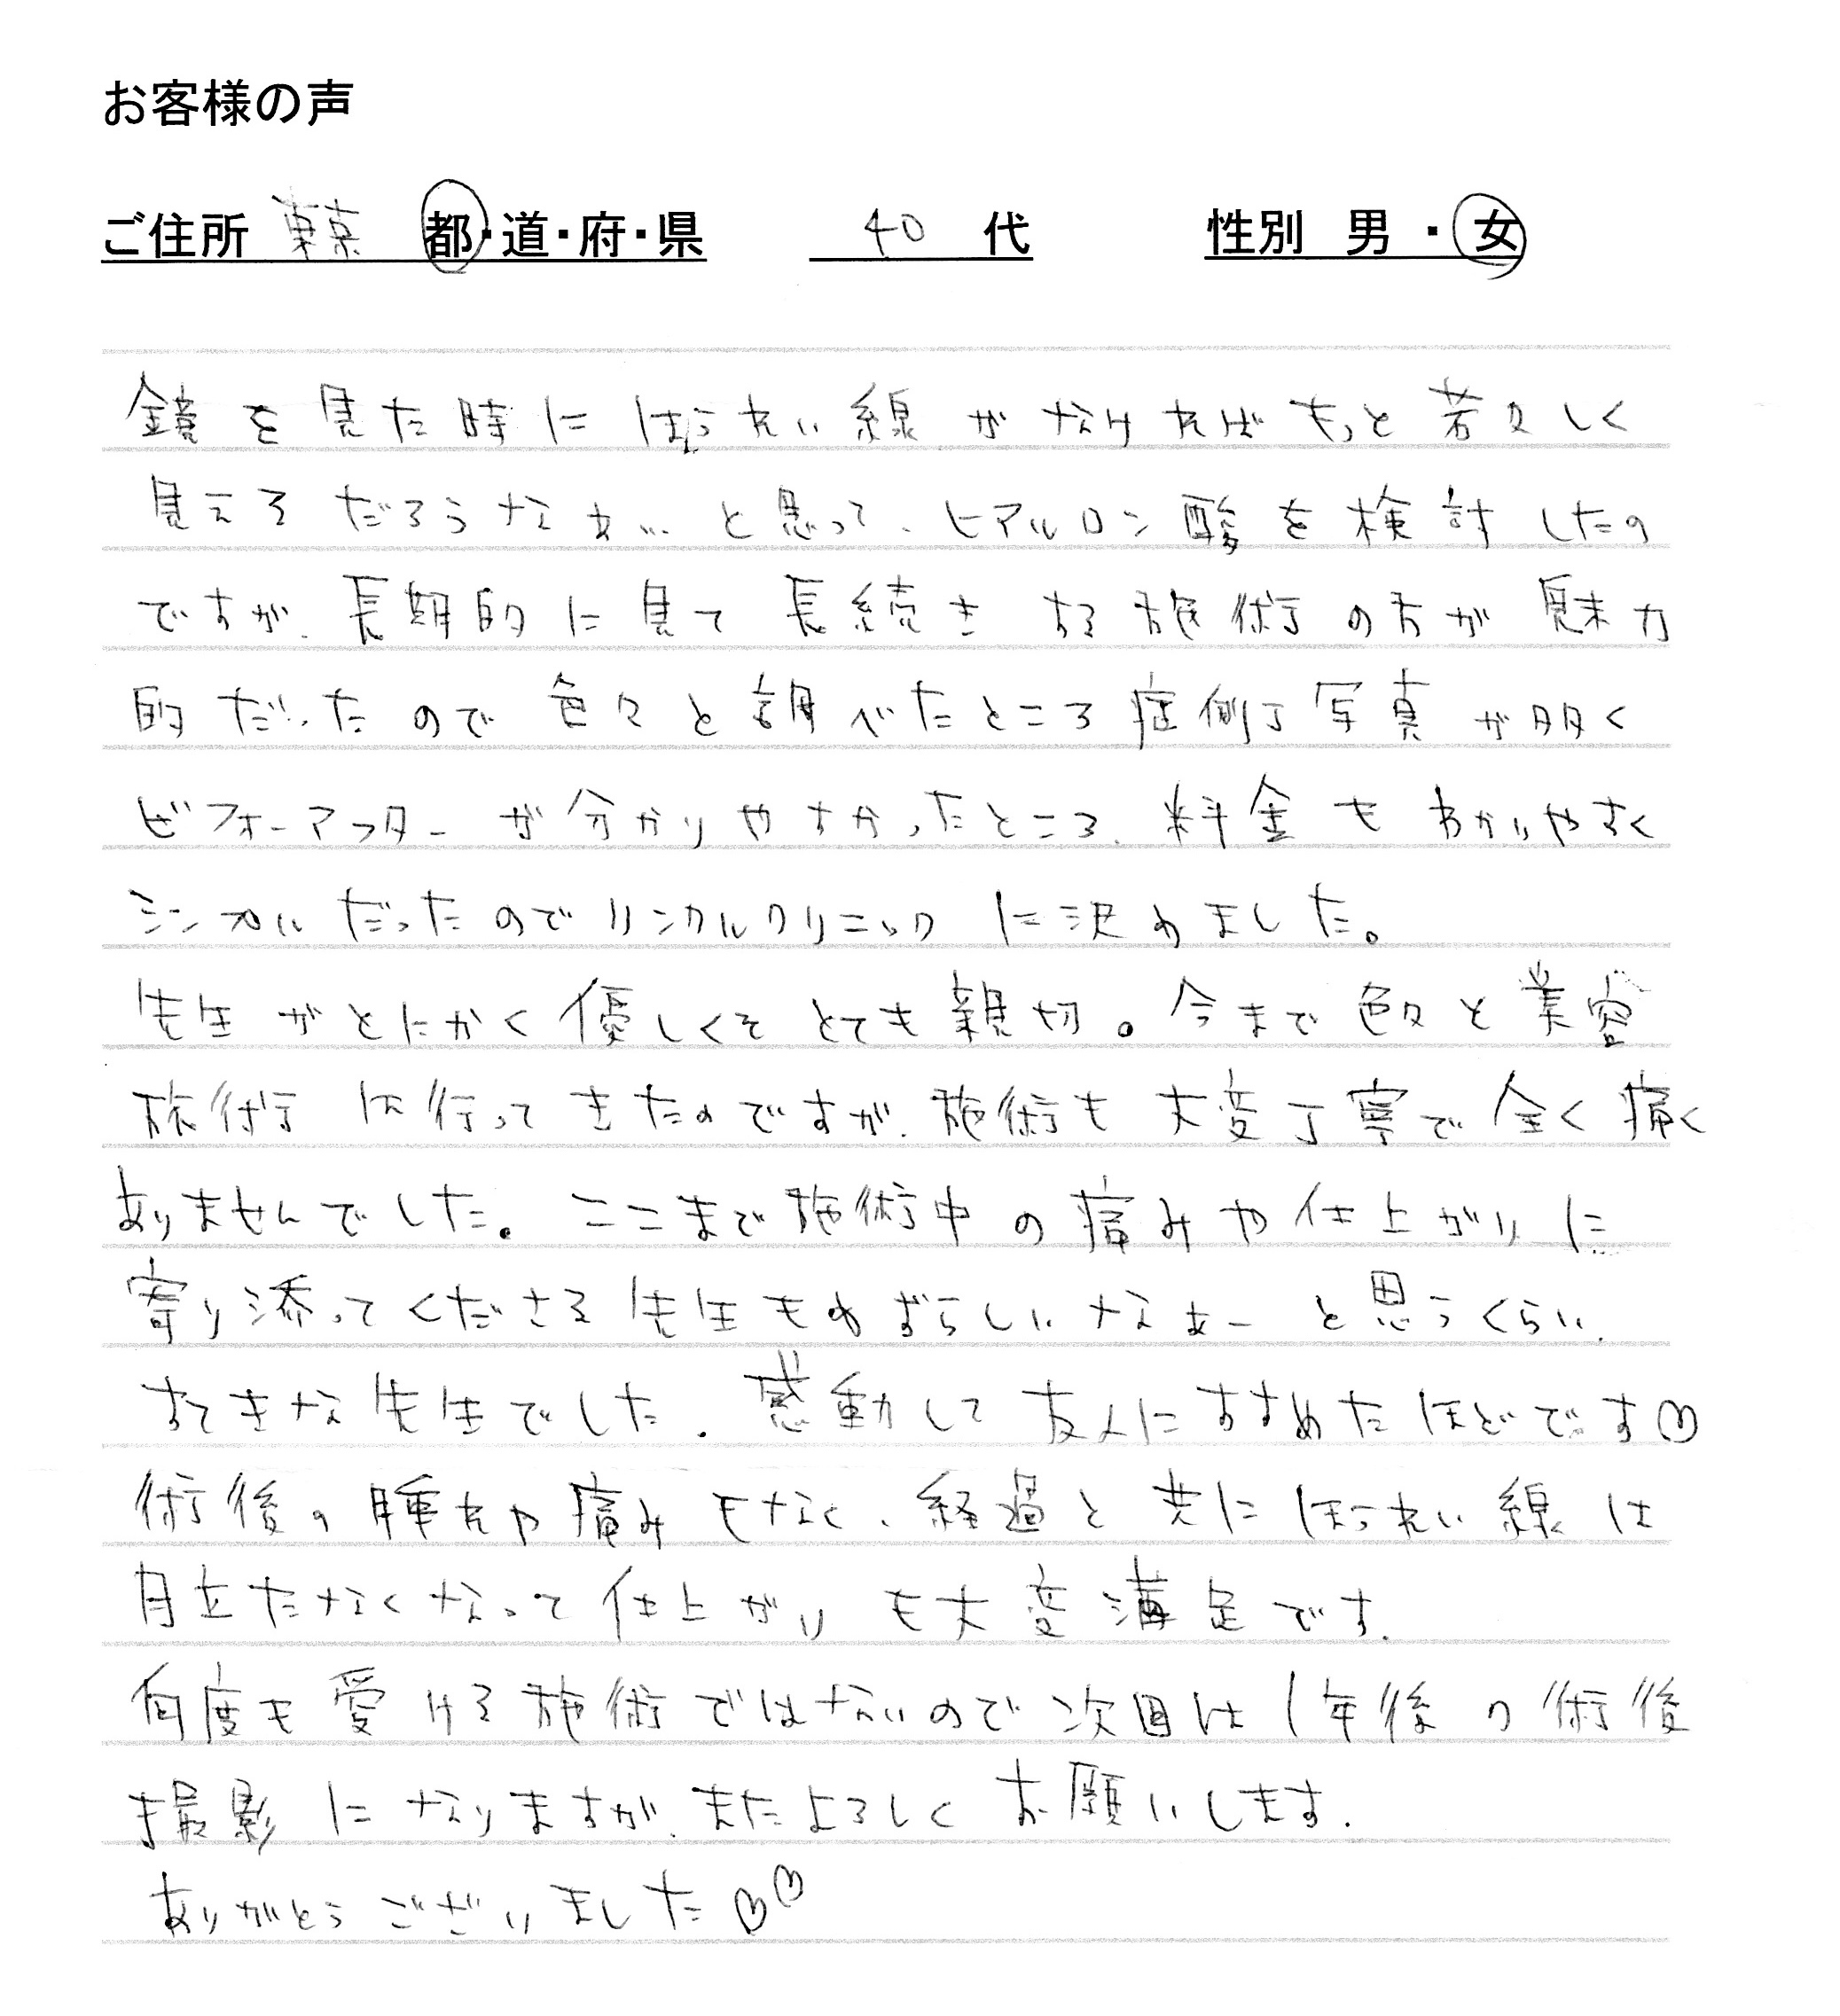 お客様の声
ご住所 東京 都・道・府・県 40 代 性別 男・女
鏡を見た時にほうれい線がなければもっと若々しく
見えるだろうなぁ…と思って、ヒアルロン酸を検討したの
ですが、長期的に見て長続きする施術の方が魅力
的だったので色々と調べたところ症例写真が多く
ビフォーアフターが分かりやすかったところ、料金もわかりやすく
シンプルだったのでリンカルクリニックに決めました。
先生がとにかく優しくてとても親切。今まで色々と美容
施術に行ってきたのですが、施術も大変丁寧で全く痛く
ありませんでした。ここまで施術中の痛みや仕上がりに
寄り添ってくださる先生もめずらしいなぁーと思うくらい、
すてきな先生でした。感動して友人にすすめたほどです♡
術後の腫れや痛みもなく、経過と共にほうれい線は
目立たなくなって仕上がりも大変満足です。
何度も受ける施術ではないので次回は1年後の術後
撮影になりますが、またよろしくお願いします。
ありがとうございました♡♡